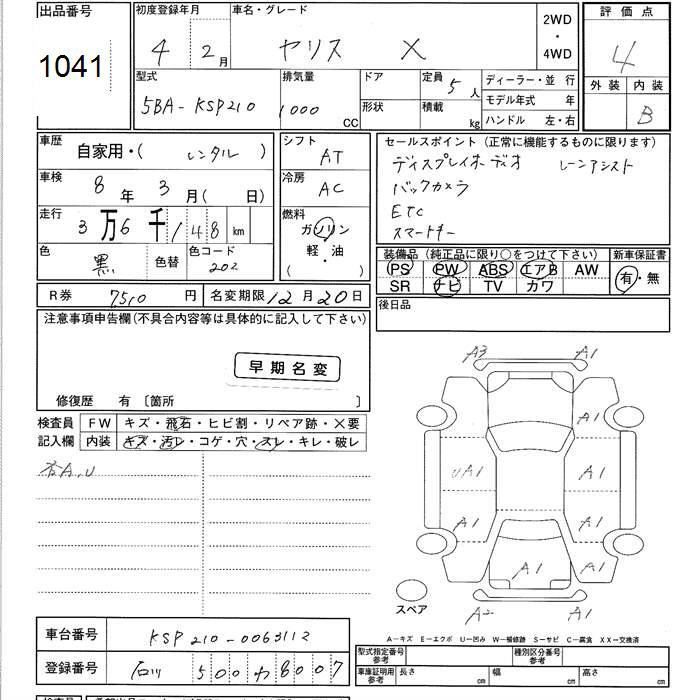 出品番号
1041
初度登録年月
4年 2月
車名・グレード
ヤリス X
2WD
・
4WD
評価点
4
外装 内装
B
型式
5BA-KSP210
排気量
1000 CC
ドア
形状
定員 5人
積載 kg
ディーラー・並 行
モデル年式 年
ハンドル 左・右
車歴
自家用・( レンタル )
車検
8年 3月( 日)
走行
3万6千148km
色
黒
色替
色コード
202
シフト
AT
冷房
AC
燃料
ガソリン
軽・油
( ・ )
セールスポイント (正常に機能するものに限ります)
ディスプレイオーディオ レーンアシスト
バックカメラ
ETC
スマートキー
装備品 (純正品に限り○をつけて下さい)
PS PW ABS エアB AW
SR ナビ TV カワ
新車保証書
有・無
R券 7510 円
名変期限 12月20日
後日品
注意事項申告欄(不具合内容等は具体的に記入して下さい)
早期名変
修復歴 有 〔箇所 〕
検査員
記入欄
FW キズ・飛石・ヒビ割・リペア跡・×要
内装 キズ・汚レ・コゲ・穴・スレ・キレ・破レ
各A.U
A3 A1
A1
UA1 A1
A1 A1
A1
A2 A1
スペア
A-キズ E-エクボ U-凹み W-補修跡 S-サビ C-腐食 XX-交換済
車台番号
KSP210-0063112
登録番号
石川 500 わ 8007
型式指定番号
参考
種別区分番号
参考
車庫証明用
参考
長さ cm 幅 cm 高さ cm